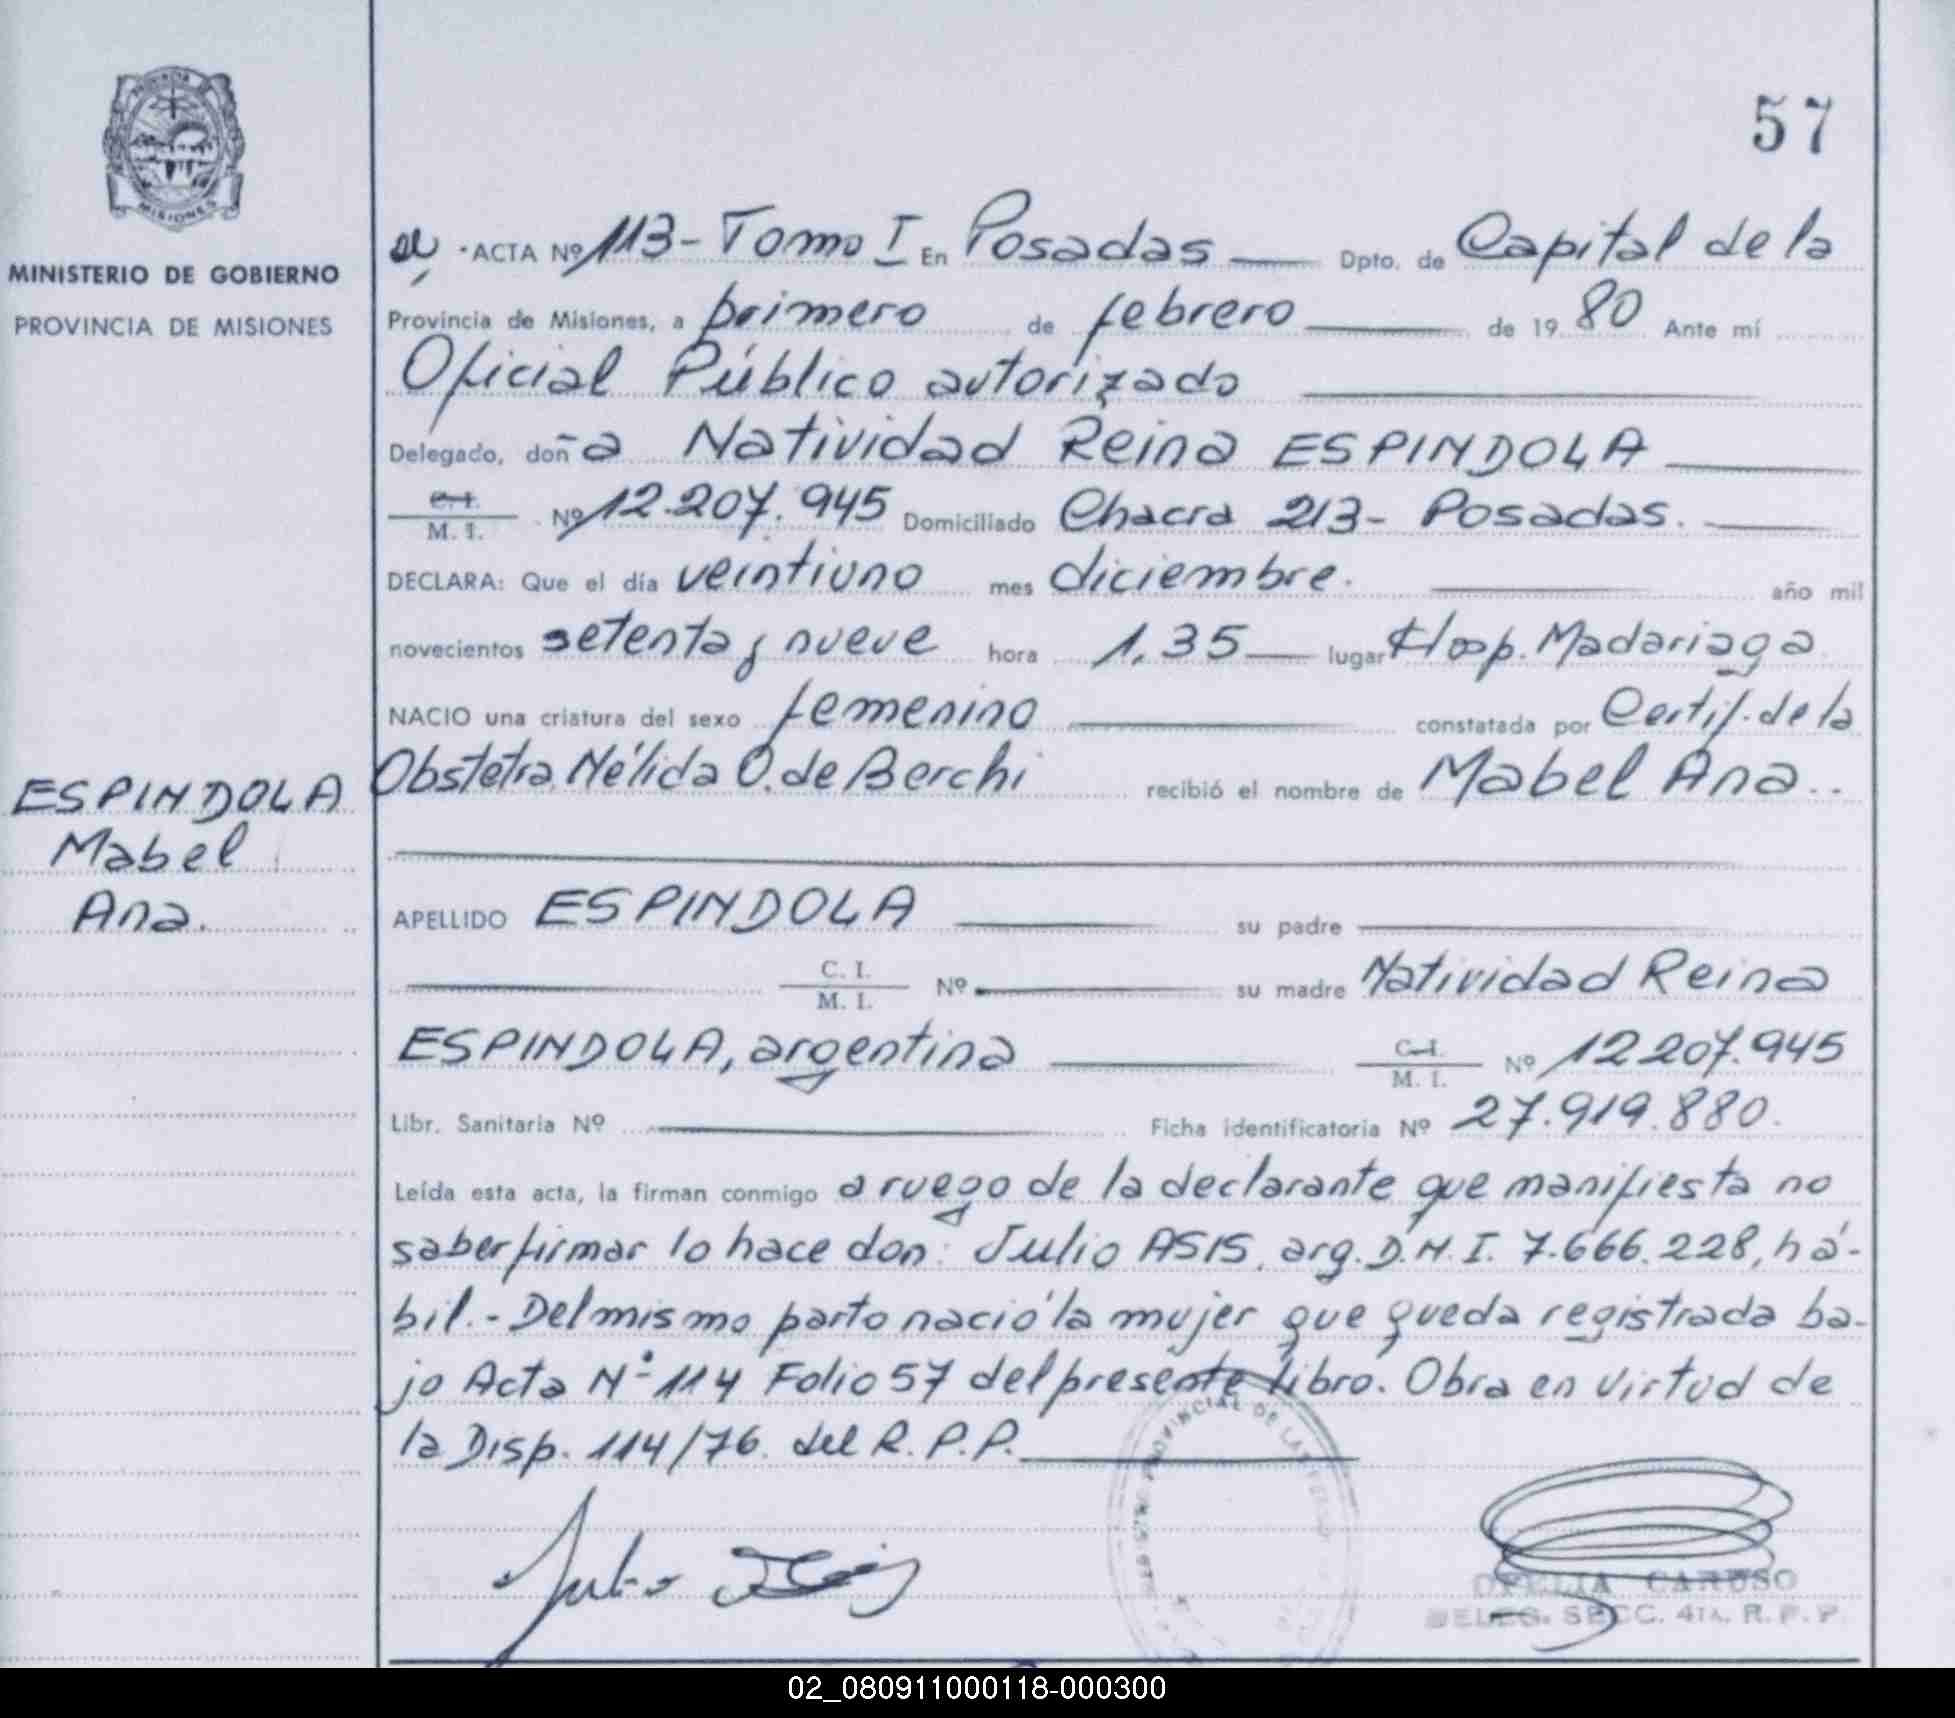 57
PROVINCIA
MISIONES
MINISTERIO DE GOBIERNO
PROVINCIA DE MISIONES
ACTA Nº 113 - Tomo I En Posadas Dpto. de Capital de la
Provincia de Misiones, a primero de febrero de 19 80 Ante mí
Oficial Público autorizado
Delegado, doña Natividad Reina ESPINDOLA
C. I.
M. I. Nº 12.207.945 Domiciliado Chacra 213 - Posadas.
DECLARA: Que el día veintiuno mes diciembre. año mil
novecientos setenta y nueve hora 1,35 lugar Hosp. Madariaga
NACIO una criatura del sexo femenino constatada por Certif. de la
Obstetra Nélida O. de Berchi recibió el nombre de Mabel Ana..
ESPINDOLA
Mabel
Ana.
APELLIDO ESPINDOLA su padre
C. I.
M. I. Nº su madre Natividad Reina
ESPINDOLA, argentina C. I.
M. I. Nº 12 207.945
Libr. Sanitaria Nº Ficha identificatoria Nº 27.919.880.
Leída esta acta, la firman conmigo a ruego de la declarante que manifiesta no
saber firmar lo hace don: Julio ASIS, arg. D.N.I. 7.666.228, há-
bil.- Del mismo parto nació la mujer que queda registrada ba-
jo Acta Nº 114 Folio 57 del presente libro. Obra en virtud de
la Disp. 114/76. del R.P.P.
PROVINCIAL DE LAS
Julio
OFELIA CARUSO
DELEG. SECC. 4ta. R. P. P
02_080911000118-000300